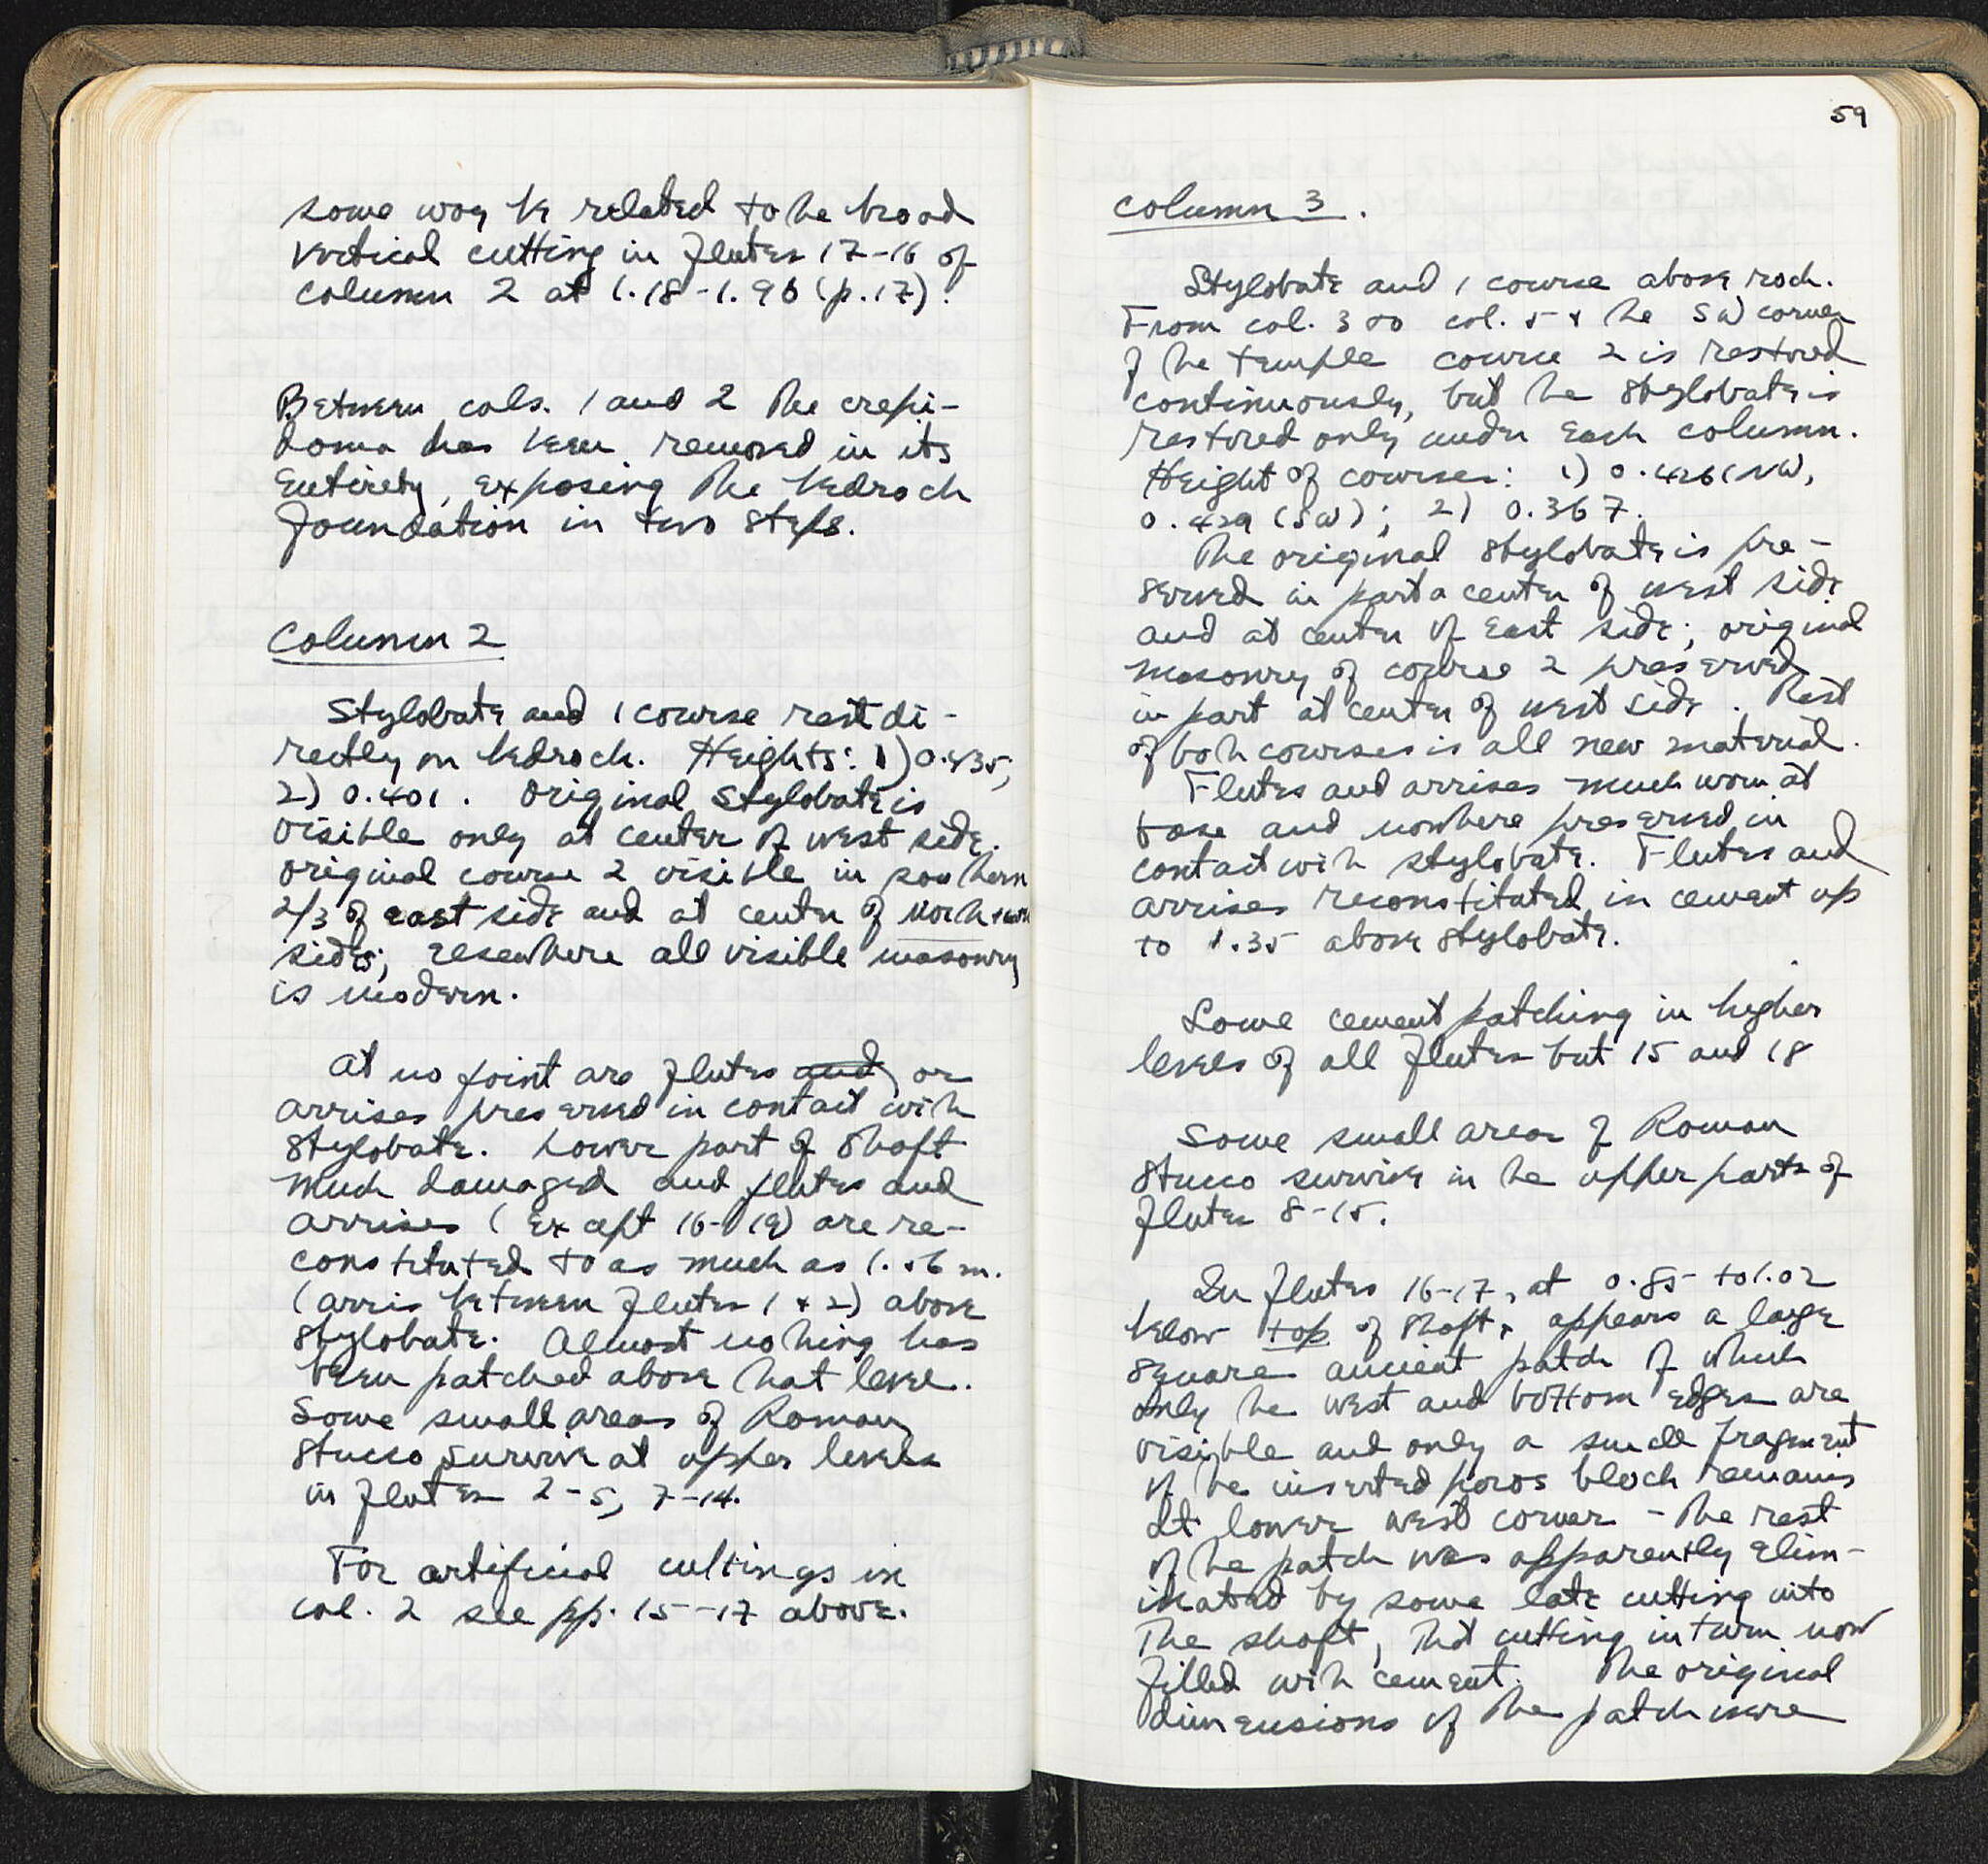 some way be related to the broad
vertical cutting in flutes 17-16 of
column 2 at 1.18-1.96 (p.17).
Between cols. 1 and 2 the crepi-
doma has been removed in its
entirety, exposing the bedrock
foundation in two steps.
Column 2
Stylobate and 1 course rest di-
rectly on bedrock. Heights: 1) 0.435,
2) 0.401. Original stylobate is
visible only at center of west side.
original course 2 visible in southern
2/3 of east side and at center of north +
sides; elsewhere all visible masonry
is modern.
At no point are flutes and or
arrises preserved in contact with
stylobate. Lower part of shaft
much damaged and flutes and
arrises (except 16-19) are re-
constituted to as much as 1.56 m.
(arris between flutes 1 + 2) above
stylobate. Almost nothing has
been patched above that level.
Some small areas of Roman
stucco survive at upper levels
in flutes 2-5, 7-14.
For artificial cuttings in
col. 2 see pp. 15-17 above.
59
Column 3.
Stylobate and 1 course above rock.
From col. 3 to col. 5 + the SW corner
of the temple course 2 is restored
continuously, but the stylobate is
restored only under each column.
Height of courses: 1) 0.426 (NW,
0.429 (SW); 2) 0.367.
The original stylobate is pre-
served in part a center of west side
and at center of east side; original
masonry of course 2 preserved
in part at center of west side. Rest
of both courses is all new material.
Flutes and arrises much worn at
base and nowhere preserved in
contact with stylobate. Flutes and
arrises reconstituted in cement up
to 1.35 above stylobate.
Some cement patching in higher
levels of all flutes but 15 and 18
Some small areas of Roman
stucco survive in the upper parts of
flutes 8-15.
In flutes 16-17, at 0.85 to 1.02
below top of shaft, appears a large
square ancient patch of which
only the west and bottom edges are
visible and only a small fragment
of the inserted poros block remains
at lower west corner - the rest
of the patch was apparently elim-
inated by some late cutting into
the shaft, that cutting in turn now
filled with cement. The original
dimensions of the patch were